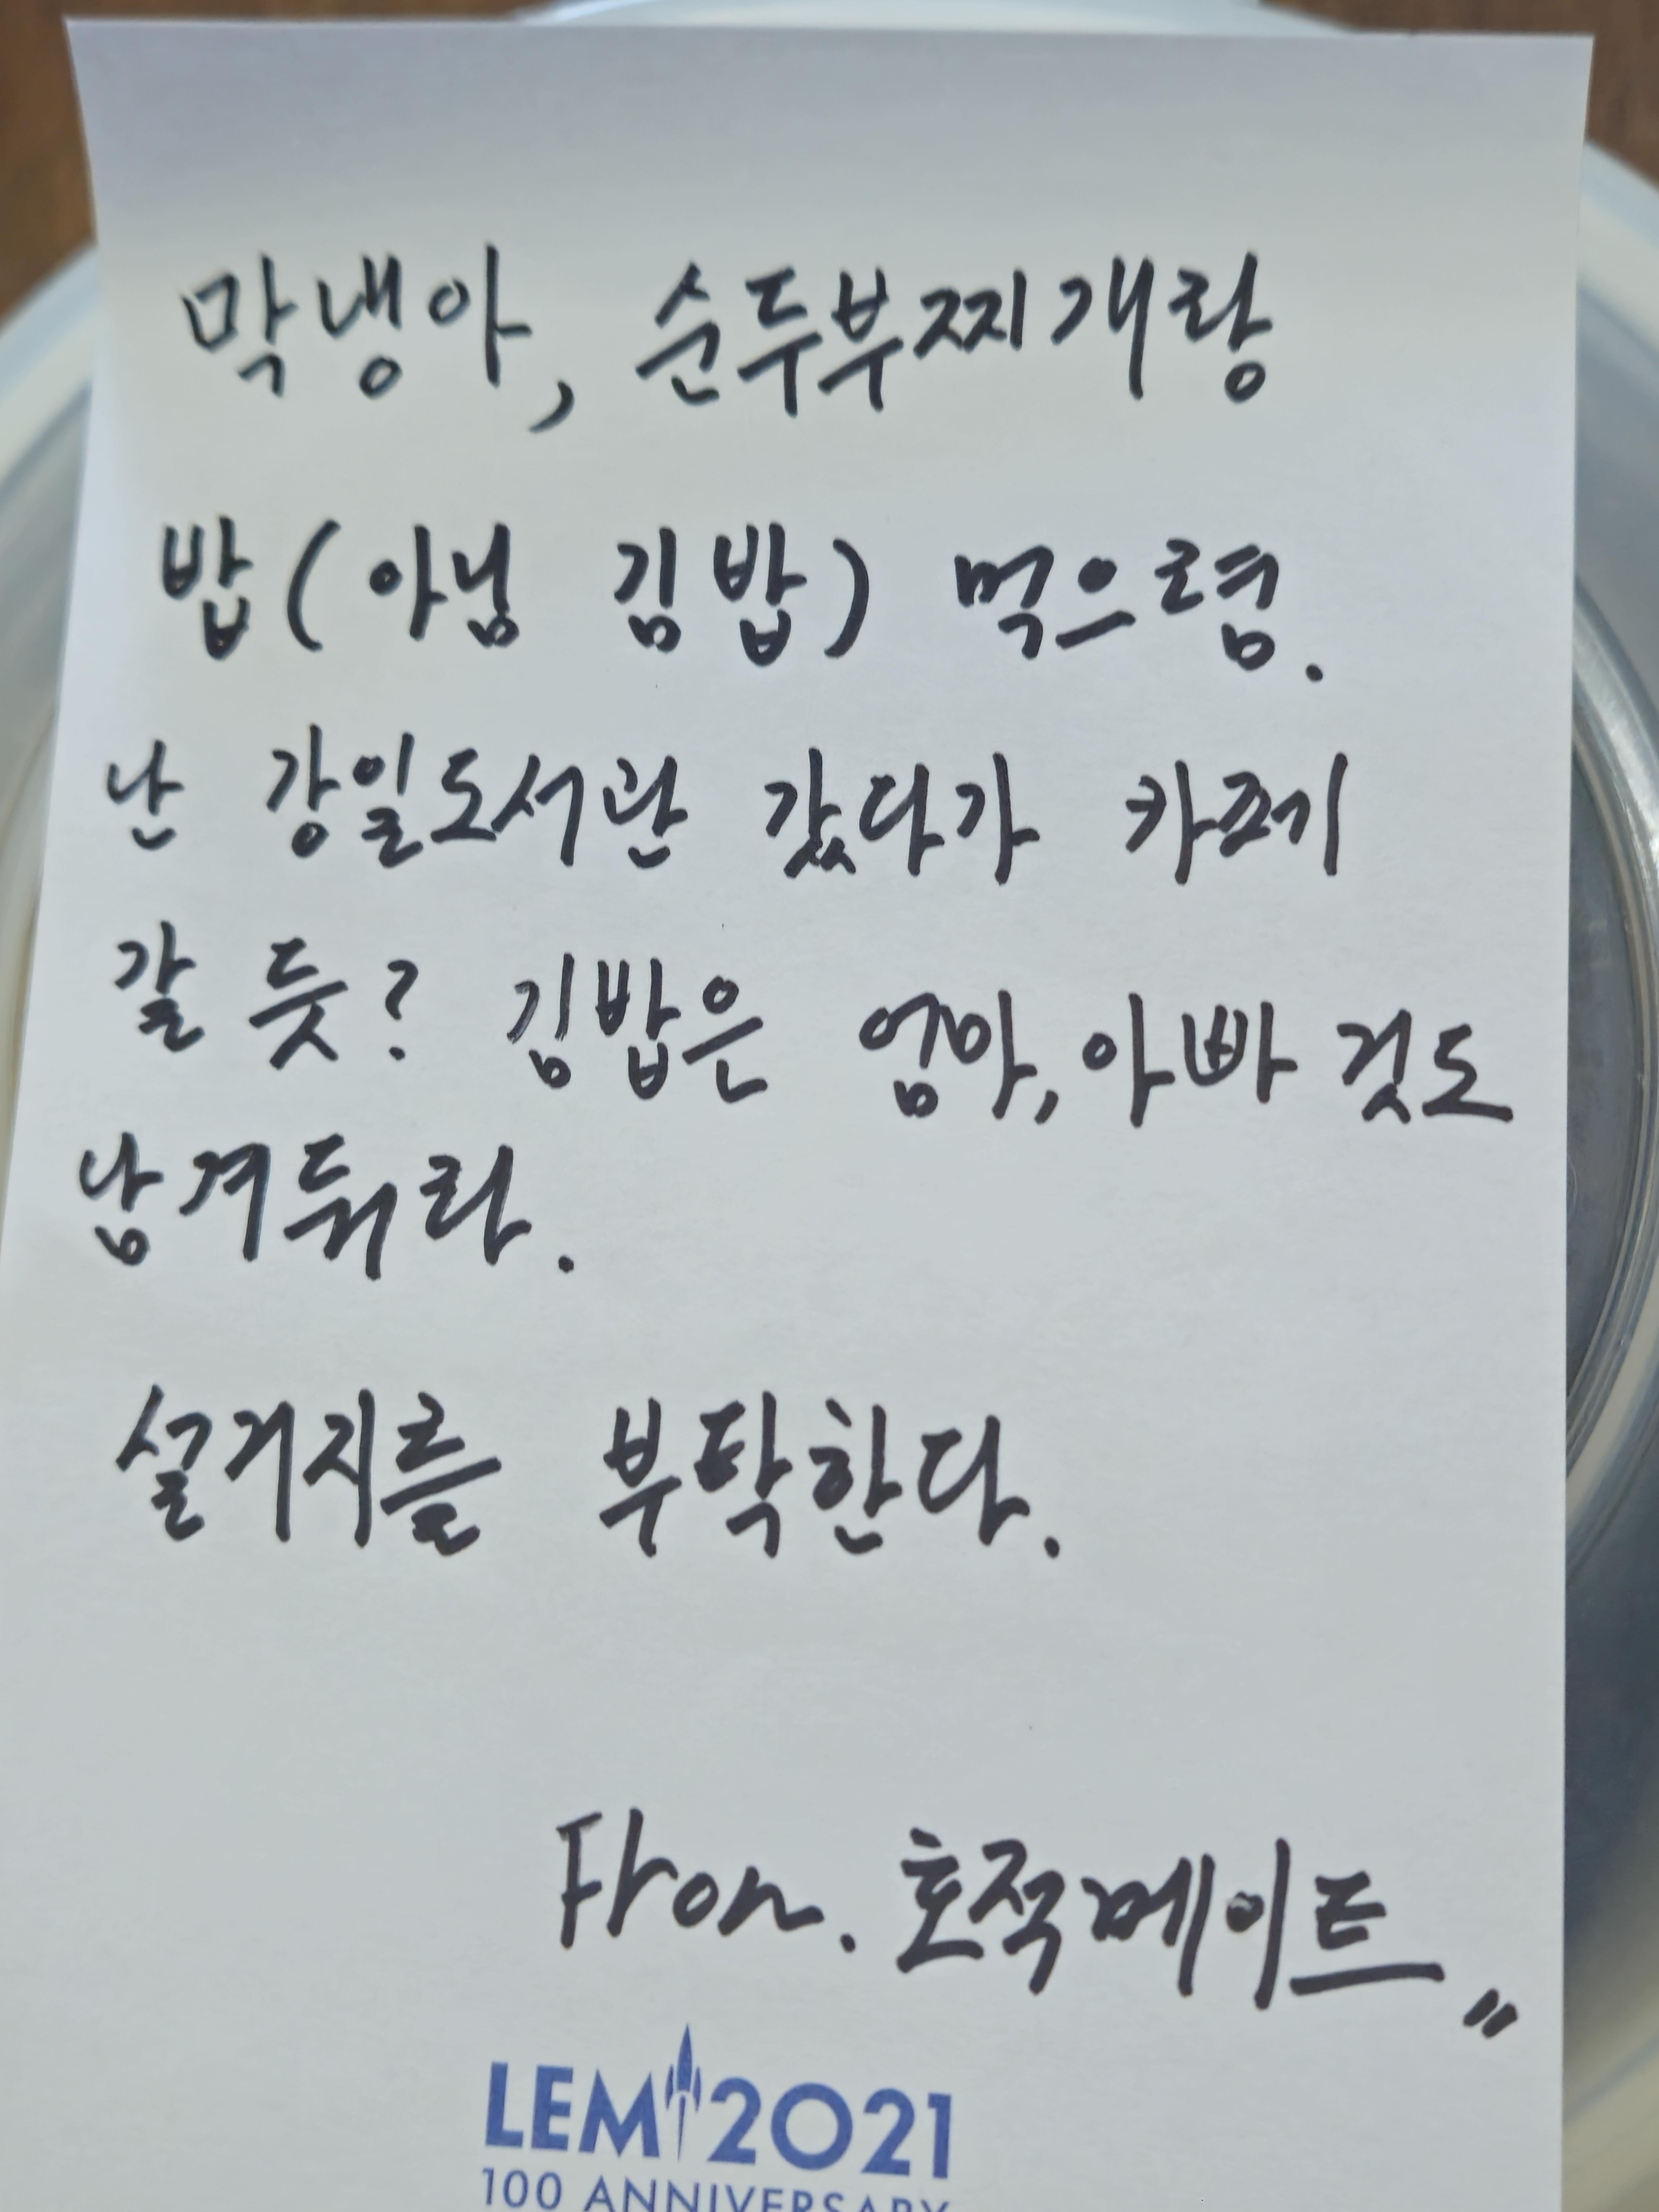 막냉아, 순두부찌개랑
밥(아님 김밥) 먹으렴.
난 강일도서관 갔다가 카페
갈 듯? 김밥은 엄마, 아빠 것도
남겨둬라.
설거지를 부탁한다.
From. 호적메이트〃
LEM 2021
100 ANNIVERSARY